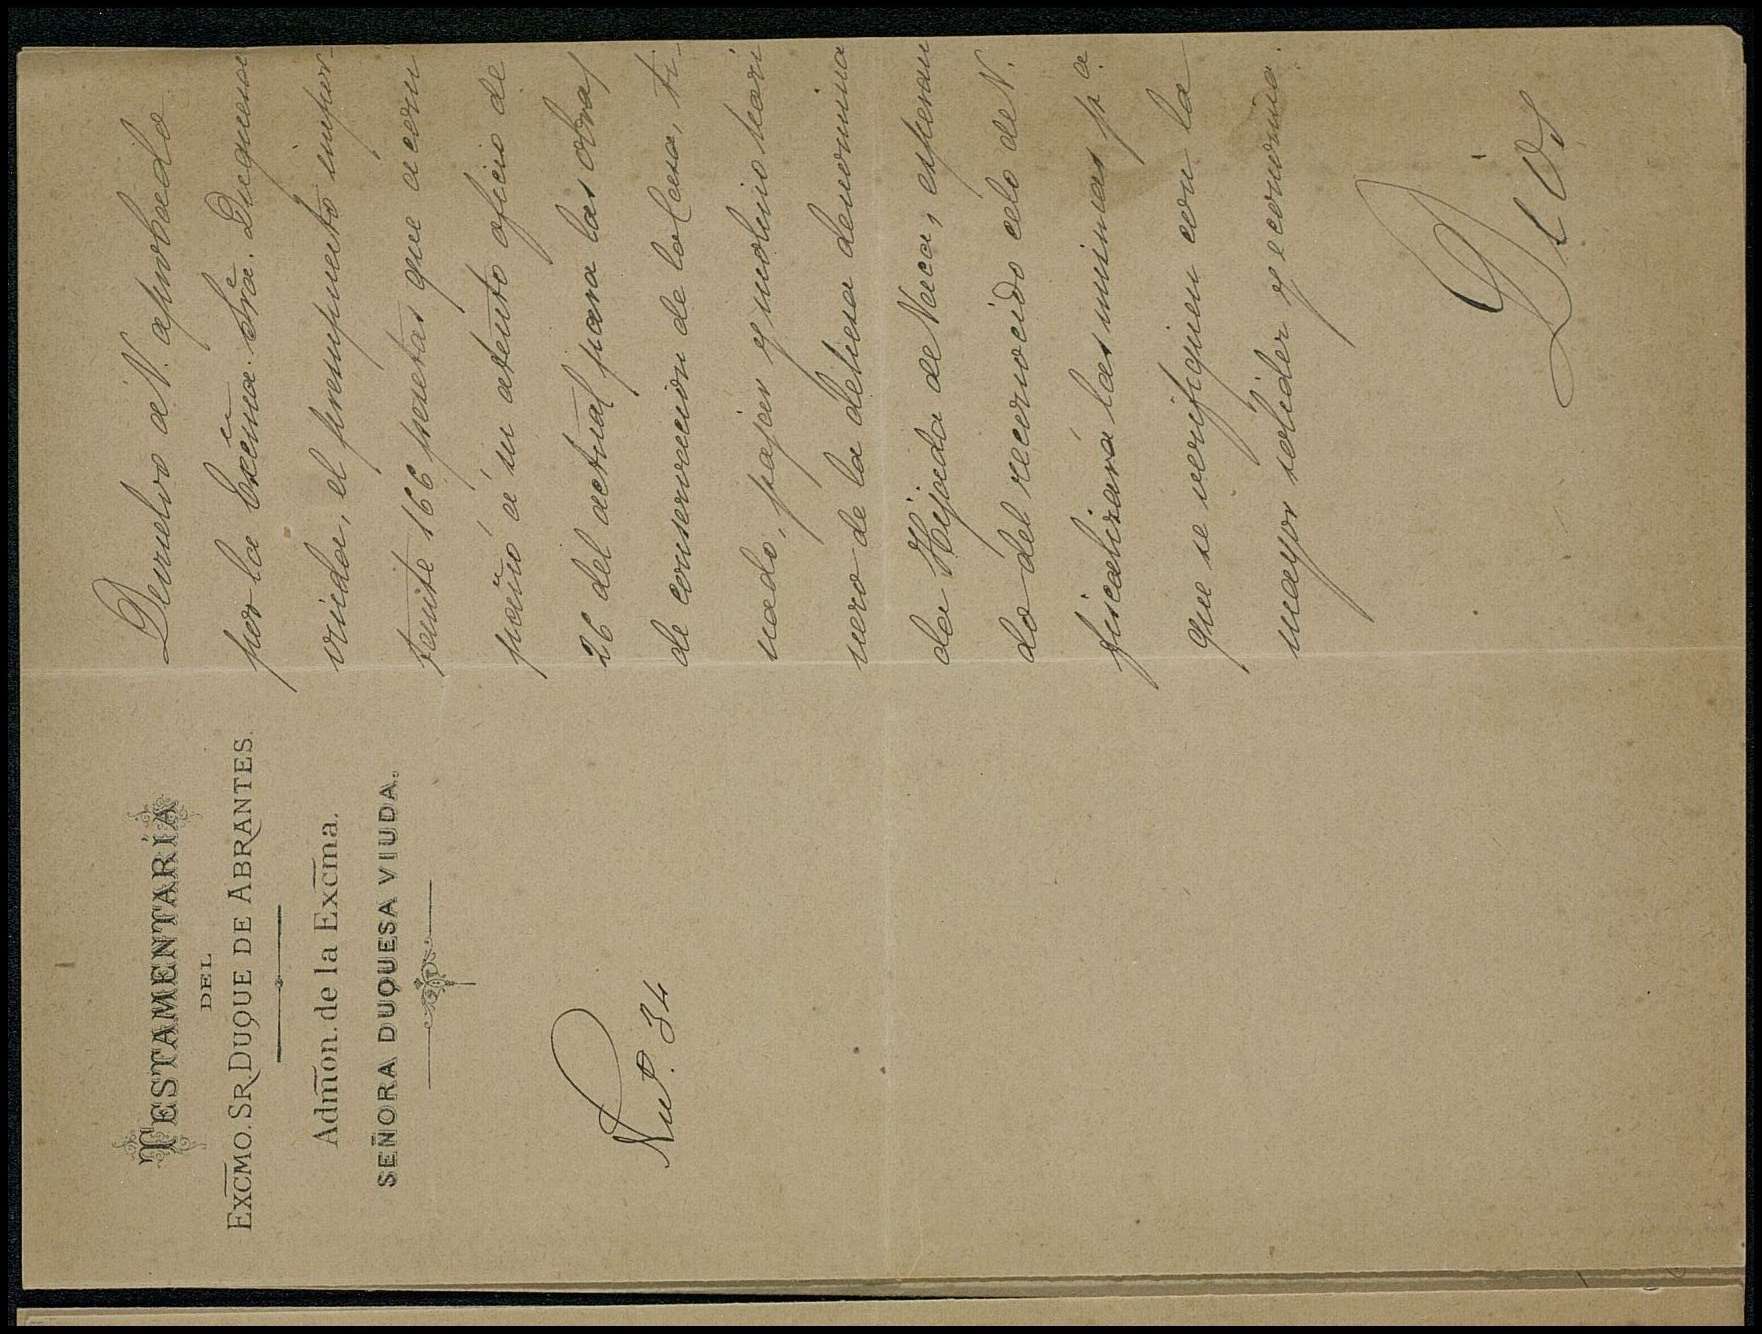 TESTAMENTARÍA
DEL
EXCMO. SR. DUQUE DE ABRANTES.
Admon. de la Excma.
SEÑORA DUQUESA VIUDA.
Num. 34
Devuelvo á V. aprobado
por la Excma. Sra. Duquesa
viuda, el presupuesto impor-
tante 166 pesetas que acom
pañó á su atento oficio de
26 del actual para las obras
de conservacion de la Casa, ti-
nado, pajar y molino hari
nero de la dehesa denomina
da Hijada de Vaca, esperan
do del reconocido celo de V.
fiscalizará las mismas pa
que se verifiquen con la
mayor solidez y economia.
Dios